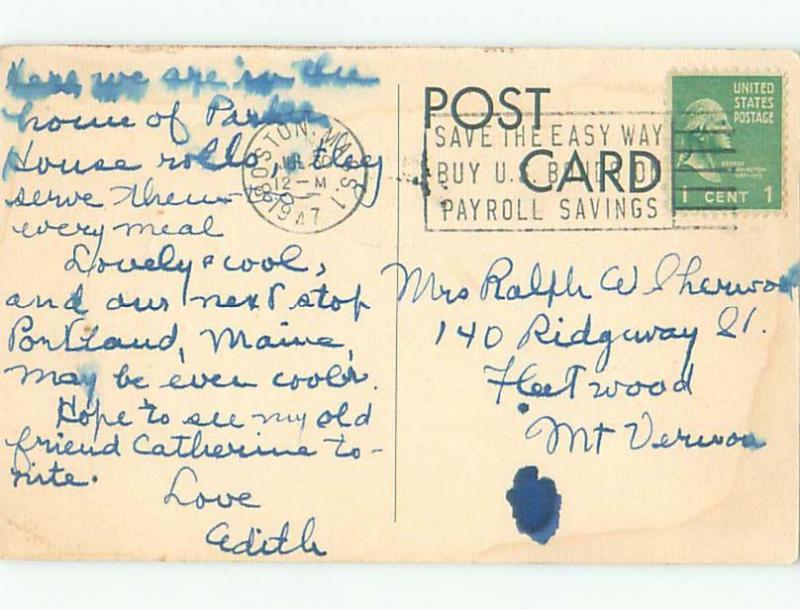 Here we are in the
home of Parker
House rolls, & they
serve them
every meal
Lovely & cool,
and our next stop
Portland, Maine,
may be even cooler.
Hope to see my old
friend Catherine to-
nite.
Love
Edith
BOSTON, MASS. 1
12-M
1947
POST
CARD
SAVE THE EASY WAY
BUY U.S. BONDS ON
PAYROLL SAVINGS
UNITED
STATES
POSTAGE
1 CENT 1
Mrs Ralph W Sherwood
140 Ridgway St.
Fleetwood
Mt Vernon